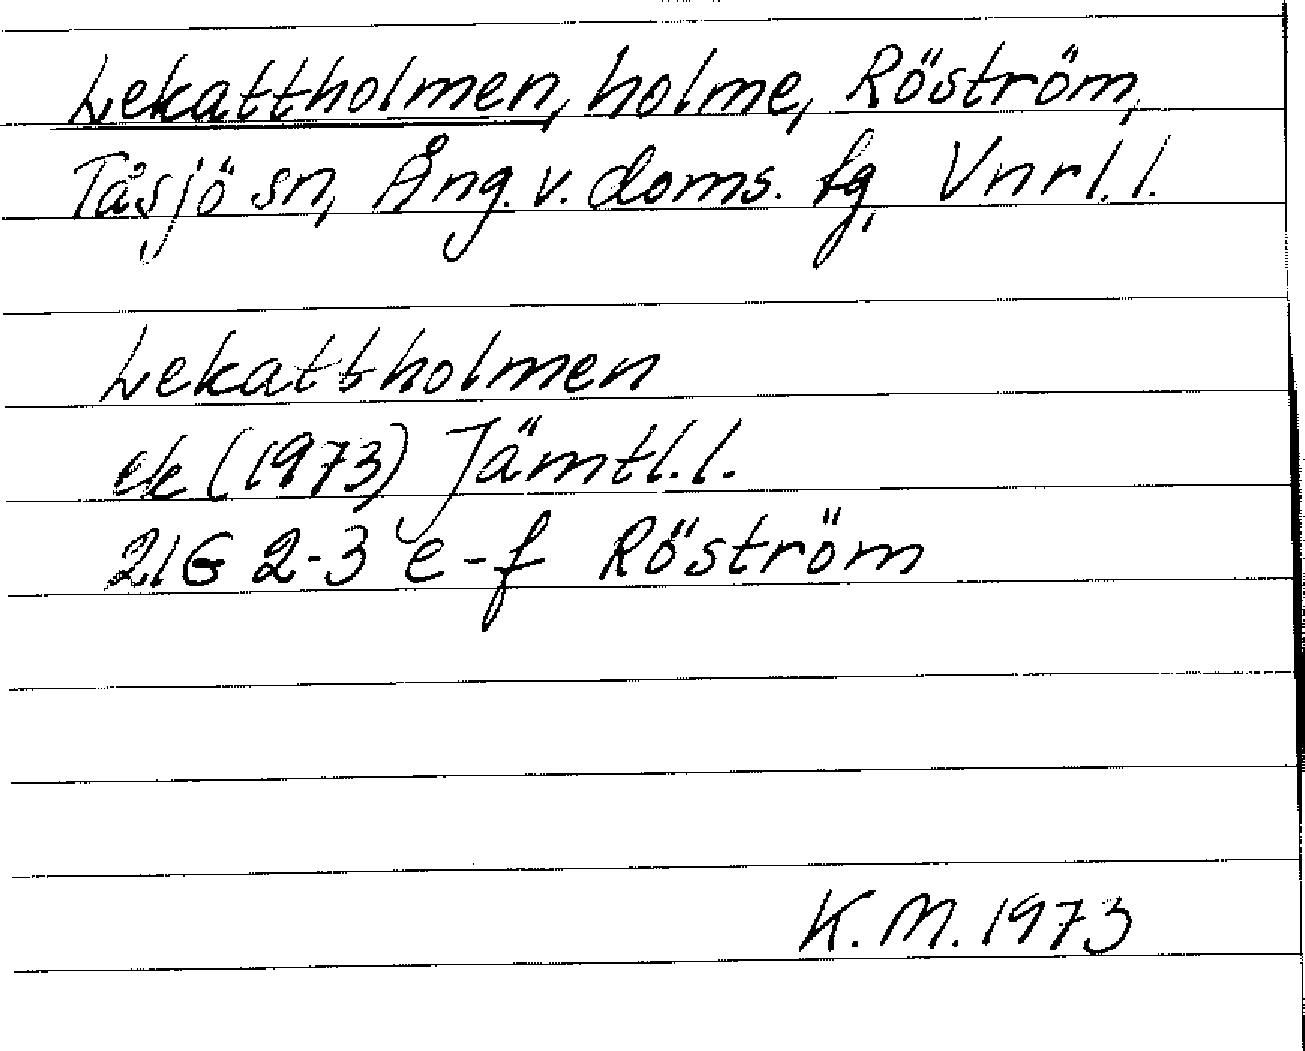 Lekattholmen, holme, Röström,
Tåsjö sn, Ång. v. doms. tg, Vnrl. l.
Lekattholmen
ek (1973) Jämtl. l.
21G 2-3 e-f Röström
K. M. 1973